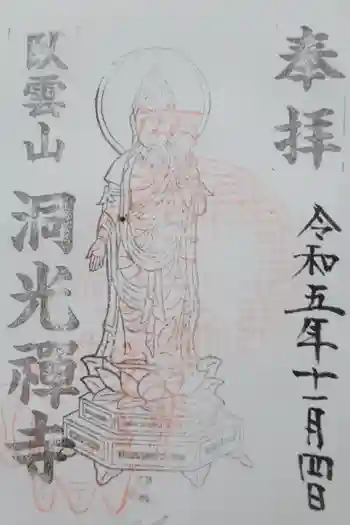 奉拝
令和五年十一月四日
臥雲山
洞光禪寺